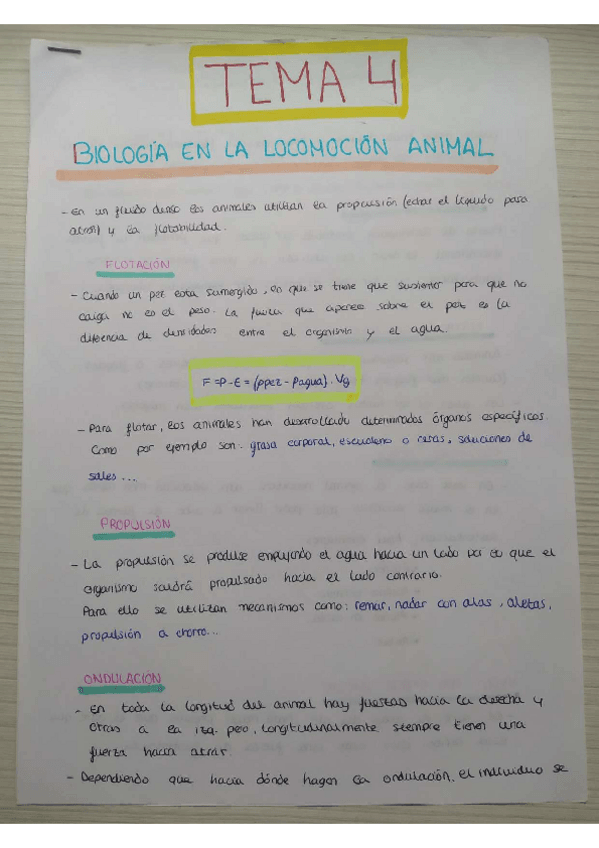 TEMA 4
BIOLOGÍA EN LA LOCOMOCIÓN ANIMAL
- En un fluido denso los animales utilizan la propulsión (echar el líquido para
atrás) y la flotabilidad.
FLOTACIÓN
- Cuando un pez esta sumergido, en que se tiene que sustentar para que no
caiga no es el peso. La fuerza que aparece sobre el pez es la
diferencia de densidades entre el organismo y el agua.
F = P - E = (ρpez - ρagua) · Vg
- Para flotar, los animales han desarrollado determinados órganos específicos.
Como por ejemplo son: grasa corporal, escualeno o ceras, soluciones de
sales ...
PROPULSIÓN
- La propulsión se produce empujando el agua hacia un lado por lo que el
organismo saldrá propulsado hacia el lado contrario.
Para ello se utilizan mecanismos como: remar, nadar con alas, aletas,
propulsión a chorro...
ONDULACIÓN
- En toda la longitud del animal hay fuerzas hacia la derecha y
otras a la izq. pero, longitudinalmente siempre tienen una
fuerza hacia atrás.
- Dependiendo que hacia dónde hagen la ondulación, el individuo se